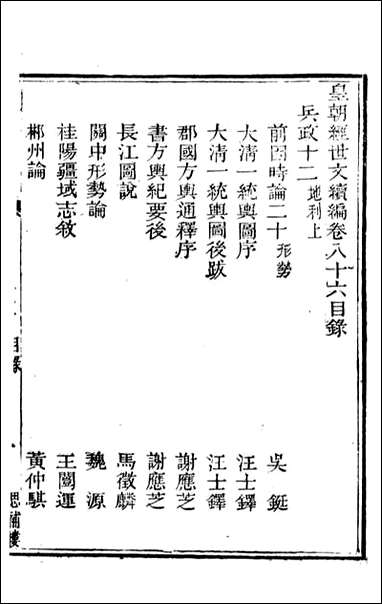 皇朝經世文續編卷八十六目錄
兵政十二 地利上
前因時論二十 形勢 吳鋌
大清一統輿圖序 汪士鐸
大清一統輿圖後跋 汪士鐸
郡國方輿通釋序 謝應芝
書方輿紀要後 謝應芝
長江圖說 馬徵麟
關中形勢論 魏源
桂陽疆域志敘 王闓運
郴州論 黃仲騏
目錄
思補樓